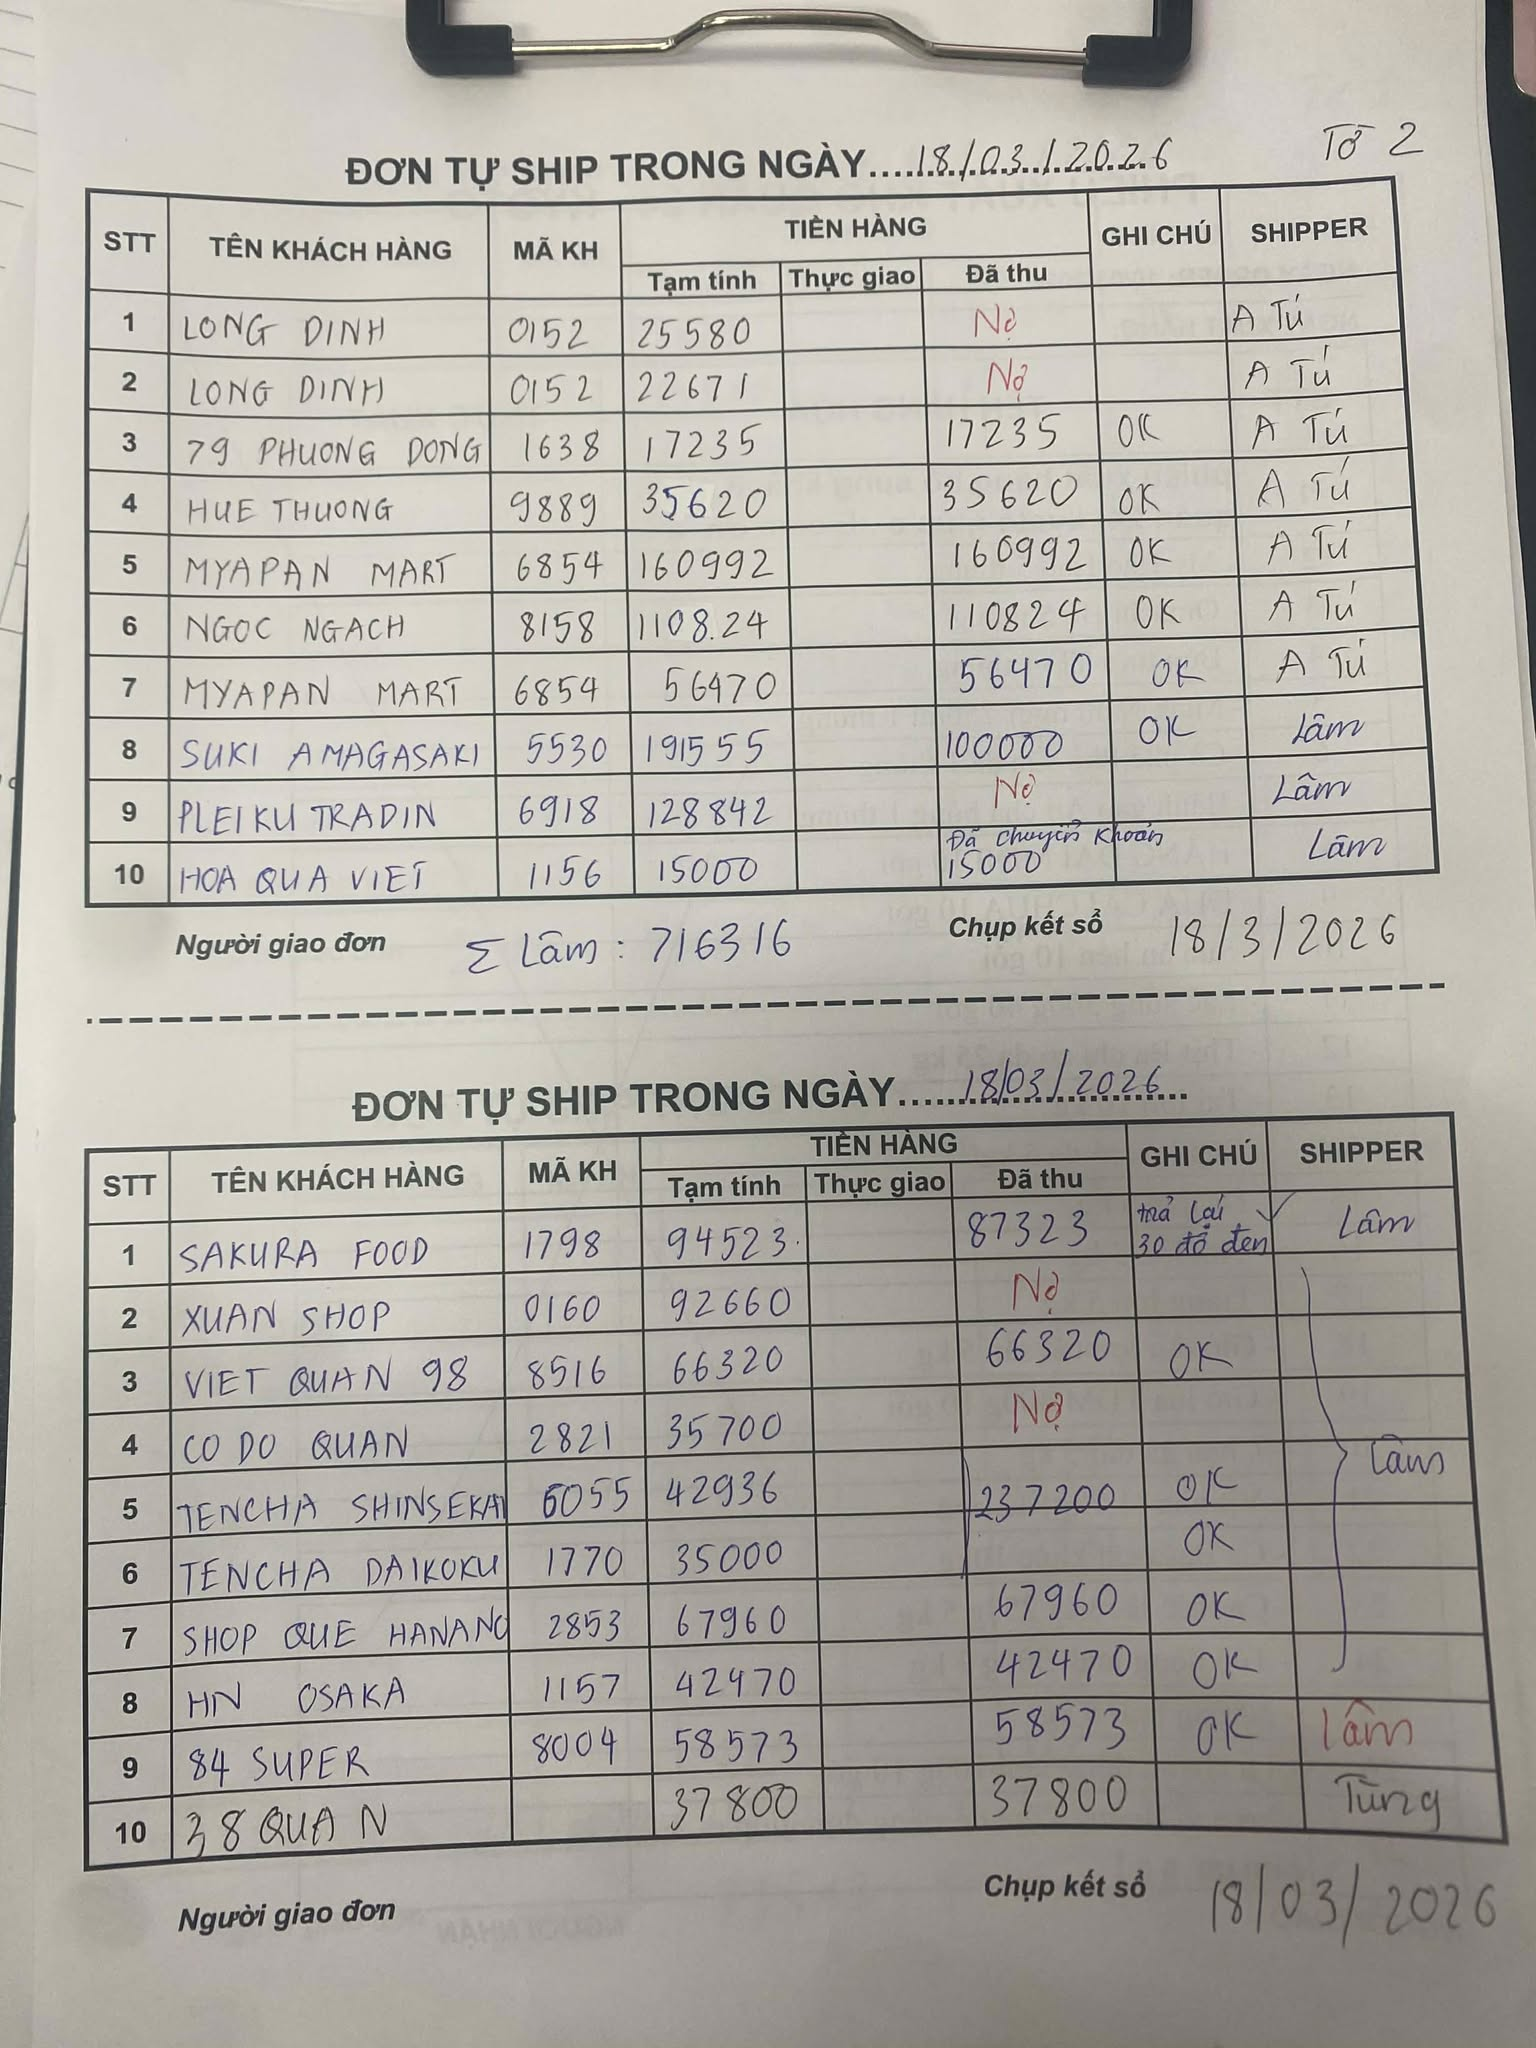 Tờ 2
ĐƠN TỰ SHIP TRONG NGÀY....18/03/2026
STT TÊN KHÁCH HÀNG MÃ KH TIỀN HÀNG GHI CHÚ SHIPPER
Tạm tính Thực giao Đã thu
1 LONG DINH 0152 25580 Nợ A Tú
2 LONG DINH 0152 22671 Nợ A Tú
3 79 PHUONG DONG 1638 17235 17235 OK A Tú
4 HUE THUONG 9889 35620 35620 OK A Tú
5 MYAPAN MART 6854 160992 160992 OK A Tú
6 NGOC NGACH 8158 1108.24 110824 OK A Tú
7 MYAPAN MART 6854 56470 56470 OK A Tú
8 SUKI AMAGASAKI 5530 191555 100000 OK Lâm
9 PLEIKU TRADIN 6918 128842 Nợ Lâm
10 HOA QUA VIET 1156 15000 Đã chuyển khoản 15000 Lâm
Người giao đơn Σ Lâm : 716316 Chụp kết sổ 18/3/2026
ĐƠN TỰ SHIP TRONG NGÀY....18/03/2026
STT TÊN KHÁCH HÀNG MÃ KH TIỀN HÀNG GHI CHÚ SHIPPER
Tạm tính Thực giao Đã thu
1 SAKURA FOOD 1798 94523 87323 trả lại 30 đỗ đen Lâm
2 XUAN SHOP 0160 92660 Nợ
3 VIET QUAN 98 8516 66320 66320 OK
4 CO DO QUAN 2821 35700 Nợ
5 TENCHA SHINSEKAI 6055 42936 237200 OK Lâm
6 TENCHA DAIKOKU 1770 35000 OK
7 SHOP QUE HANANO 2853 67960 67960 OK
8 HN OSAKA 1157 42470 42470 OK
9 84 SUPER 8004 58573 58573 OK Lâm
10 38 QUAN 37800 37800 Tùng
Người giao đơn Chụp kết sổ 18/03/2026